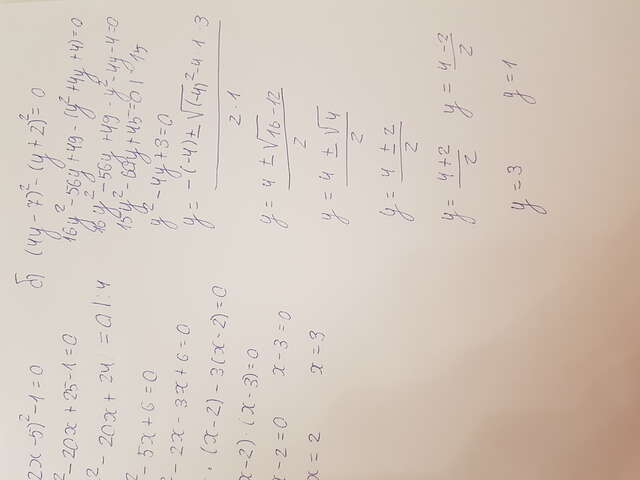 2x-5)²-1=0
²-20x+25-1=0
²-20x+24=0 |:4
²-5x+6=0
²-2x-3x+6=0
·(x-2)-3(x-2)=0
x-2)·(x-3)=0
x-2=0 x-3=0
x=2 x=3
б) (4y-7)²-(y+2)²=0
16y²-56y+49-(y²+4y+4)=0
16y²-56y+49-y²-4y-4=0
15y²-60y+45=0 | 15
y²-4y+3=0
y=\frac{-(-4)±\sqrt{(-4)²-4·1·3}}{2·1}
y=\frac{4±\sqrt{16-12}}{2}
y=\frac{4±\sqrt{4}}{2}
y=\frac{4±2}{2}
y=\frac{4+2}{2} y=\frac{4-2}{2}
y=3 y=1